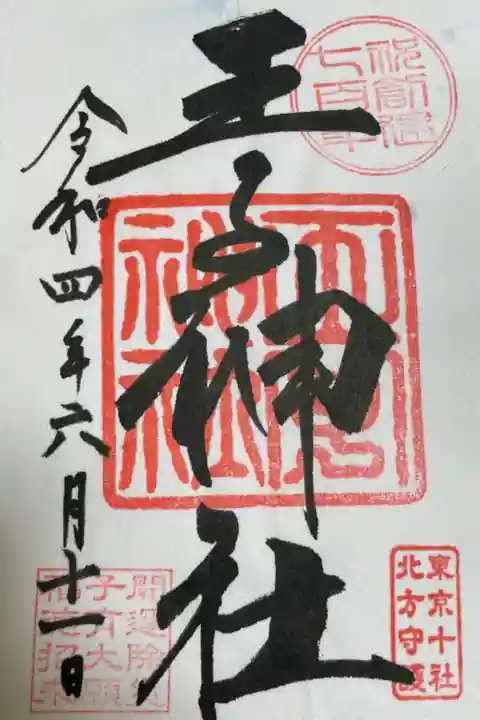 祝創建
七百年
王子神社
王子
神社
東京十社
北方守護
令和四年六月十一日
開運除災